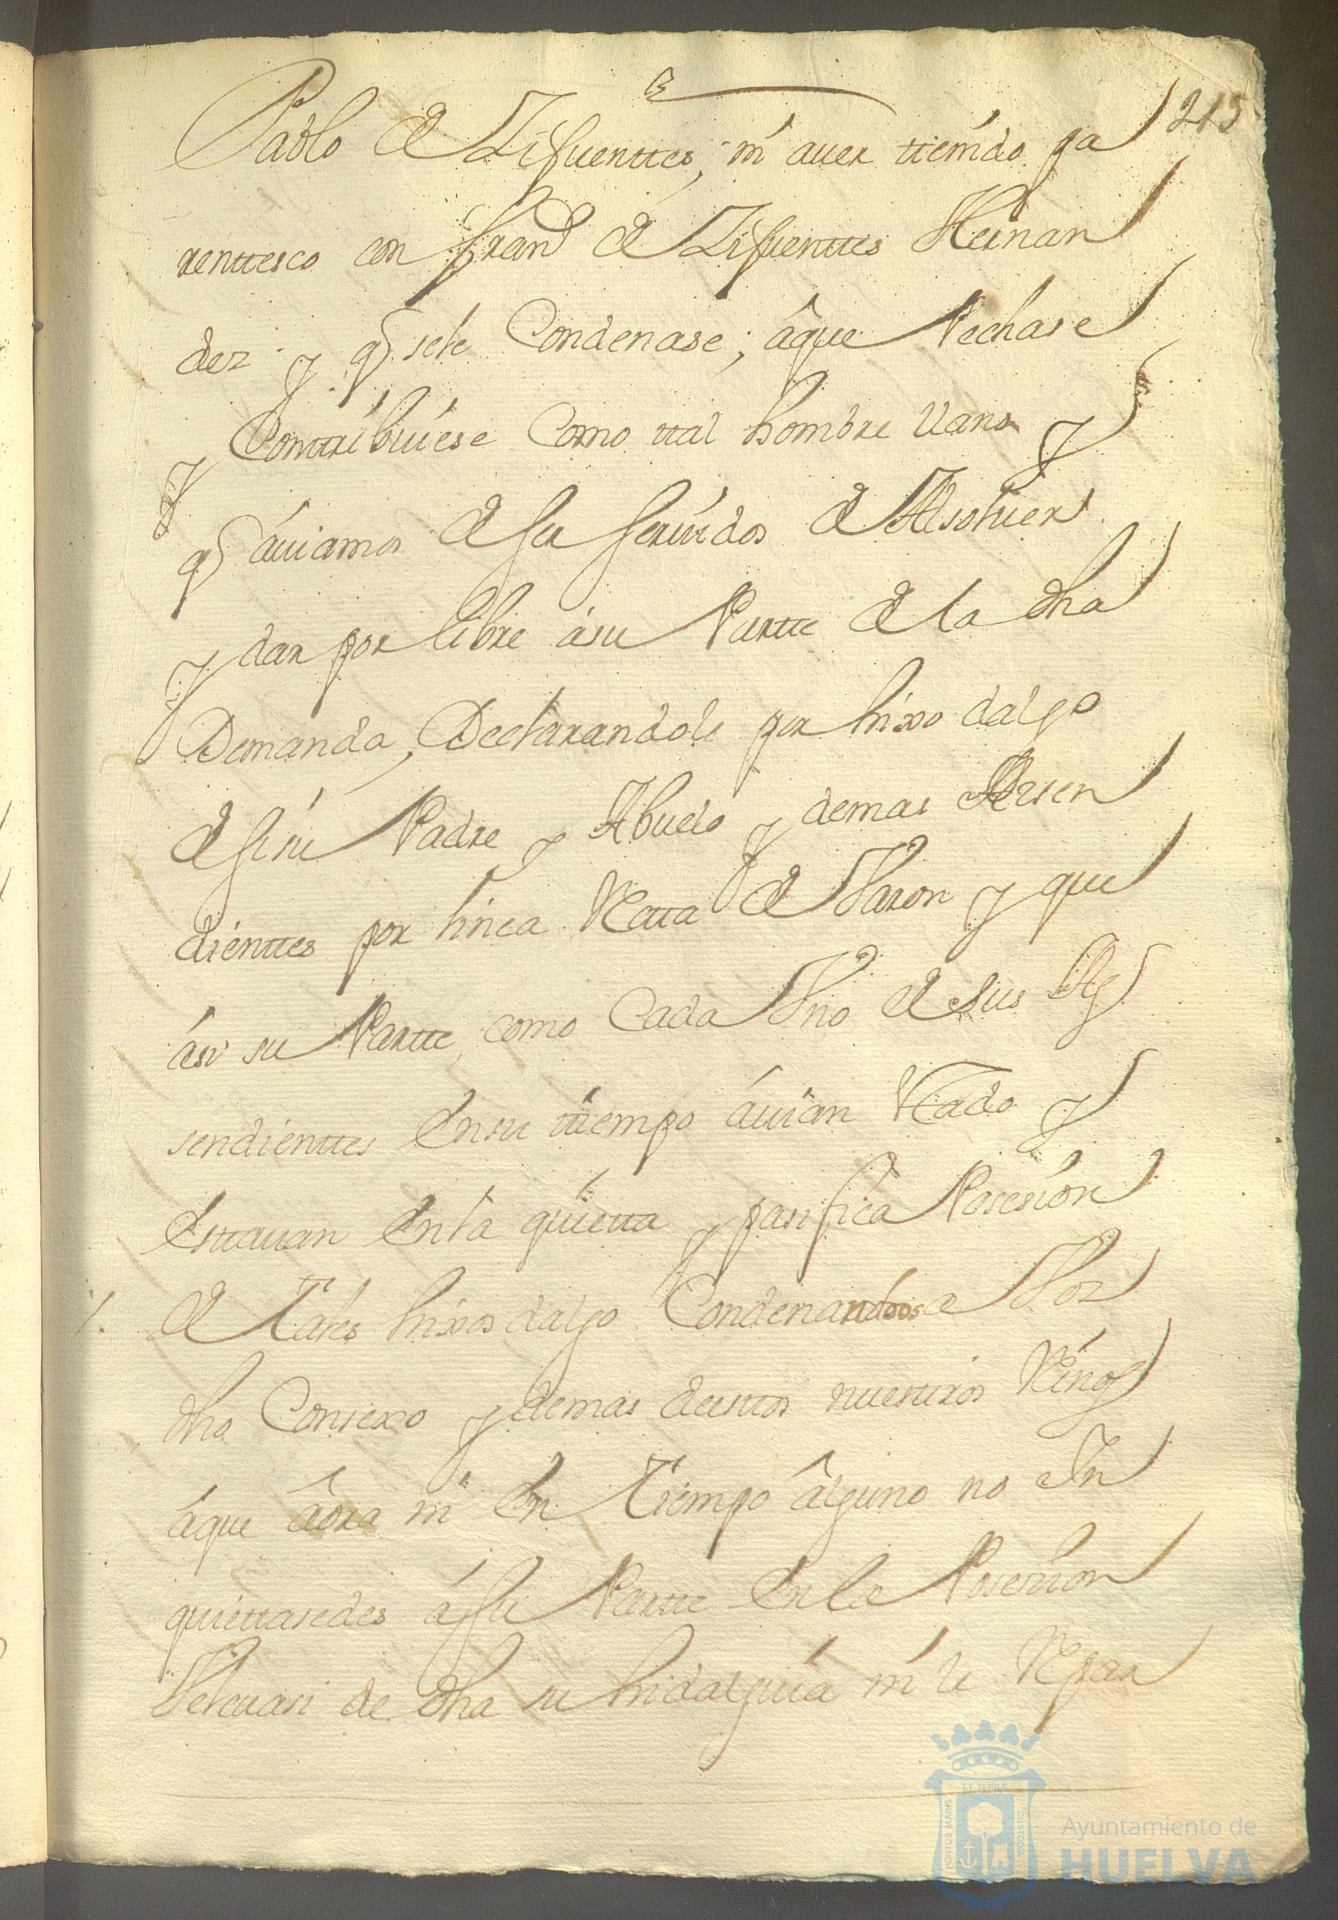 215
Pablo de Zifuenttes, ni auer ttenido pa
renttesco con fran.do de Zifuenttes Hernan
dez y q sele Condenase; âque Pechase
y Conttribuiese como ttal hombre llano y
q áuiamos de ser seruidos de Absoluer
y dar por libre ásu Partte de la dha
Demanda, Declarandole por hixo dalgo
de si su Padre y Abuelo y demas Asen
dienttes por linea Rectta de Varon y que
ási su Partte, como Cada Vno de sus As
sendienttes en su ttiempo áuian estado y
esttauan en la quietta y pasifica Posesion
de Tales hixos dalgo Condenandose a Voz
dho Consexo y demas destos nuestros Reinos
áque âora ni en Tiempo âlguno no In
quiettasedes á su Partte en la Posesion
Velcuasi de dha su hidalguia ni le Repar
Ayuntamiento de
HUELVA